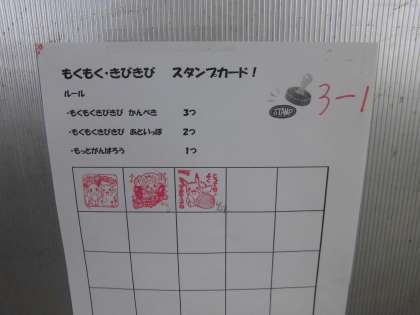 もくもく・きびきび　スタンプカード！
ルール
・もくもくきびきび　かんぺき　3つ
・もくもくきびきび　あといっぽ　2つ
・もっとがんばろう　1つ
STAMP
3-1